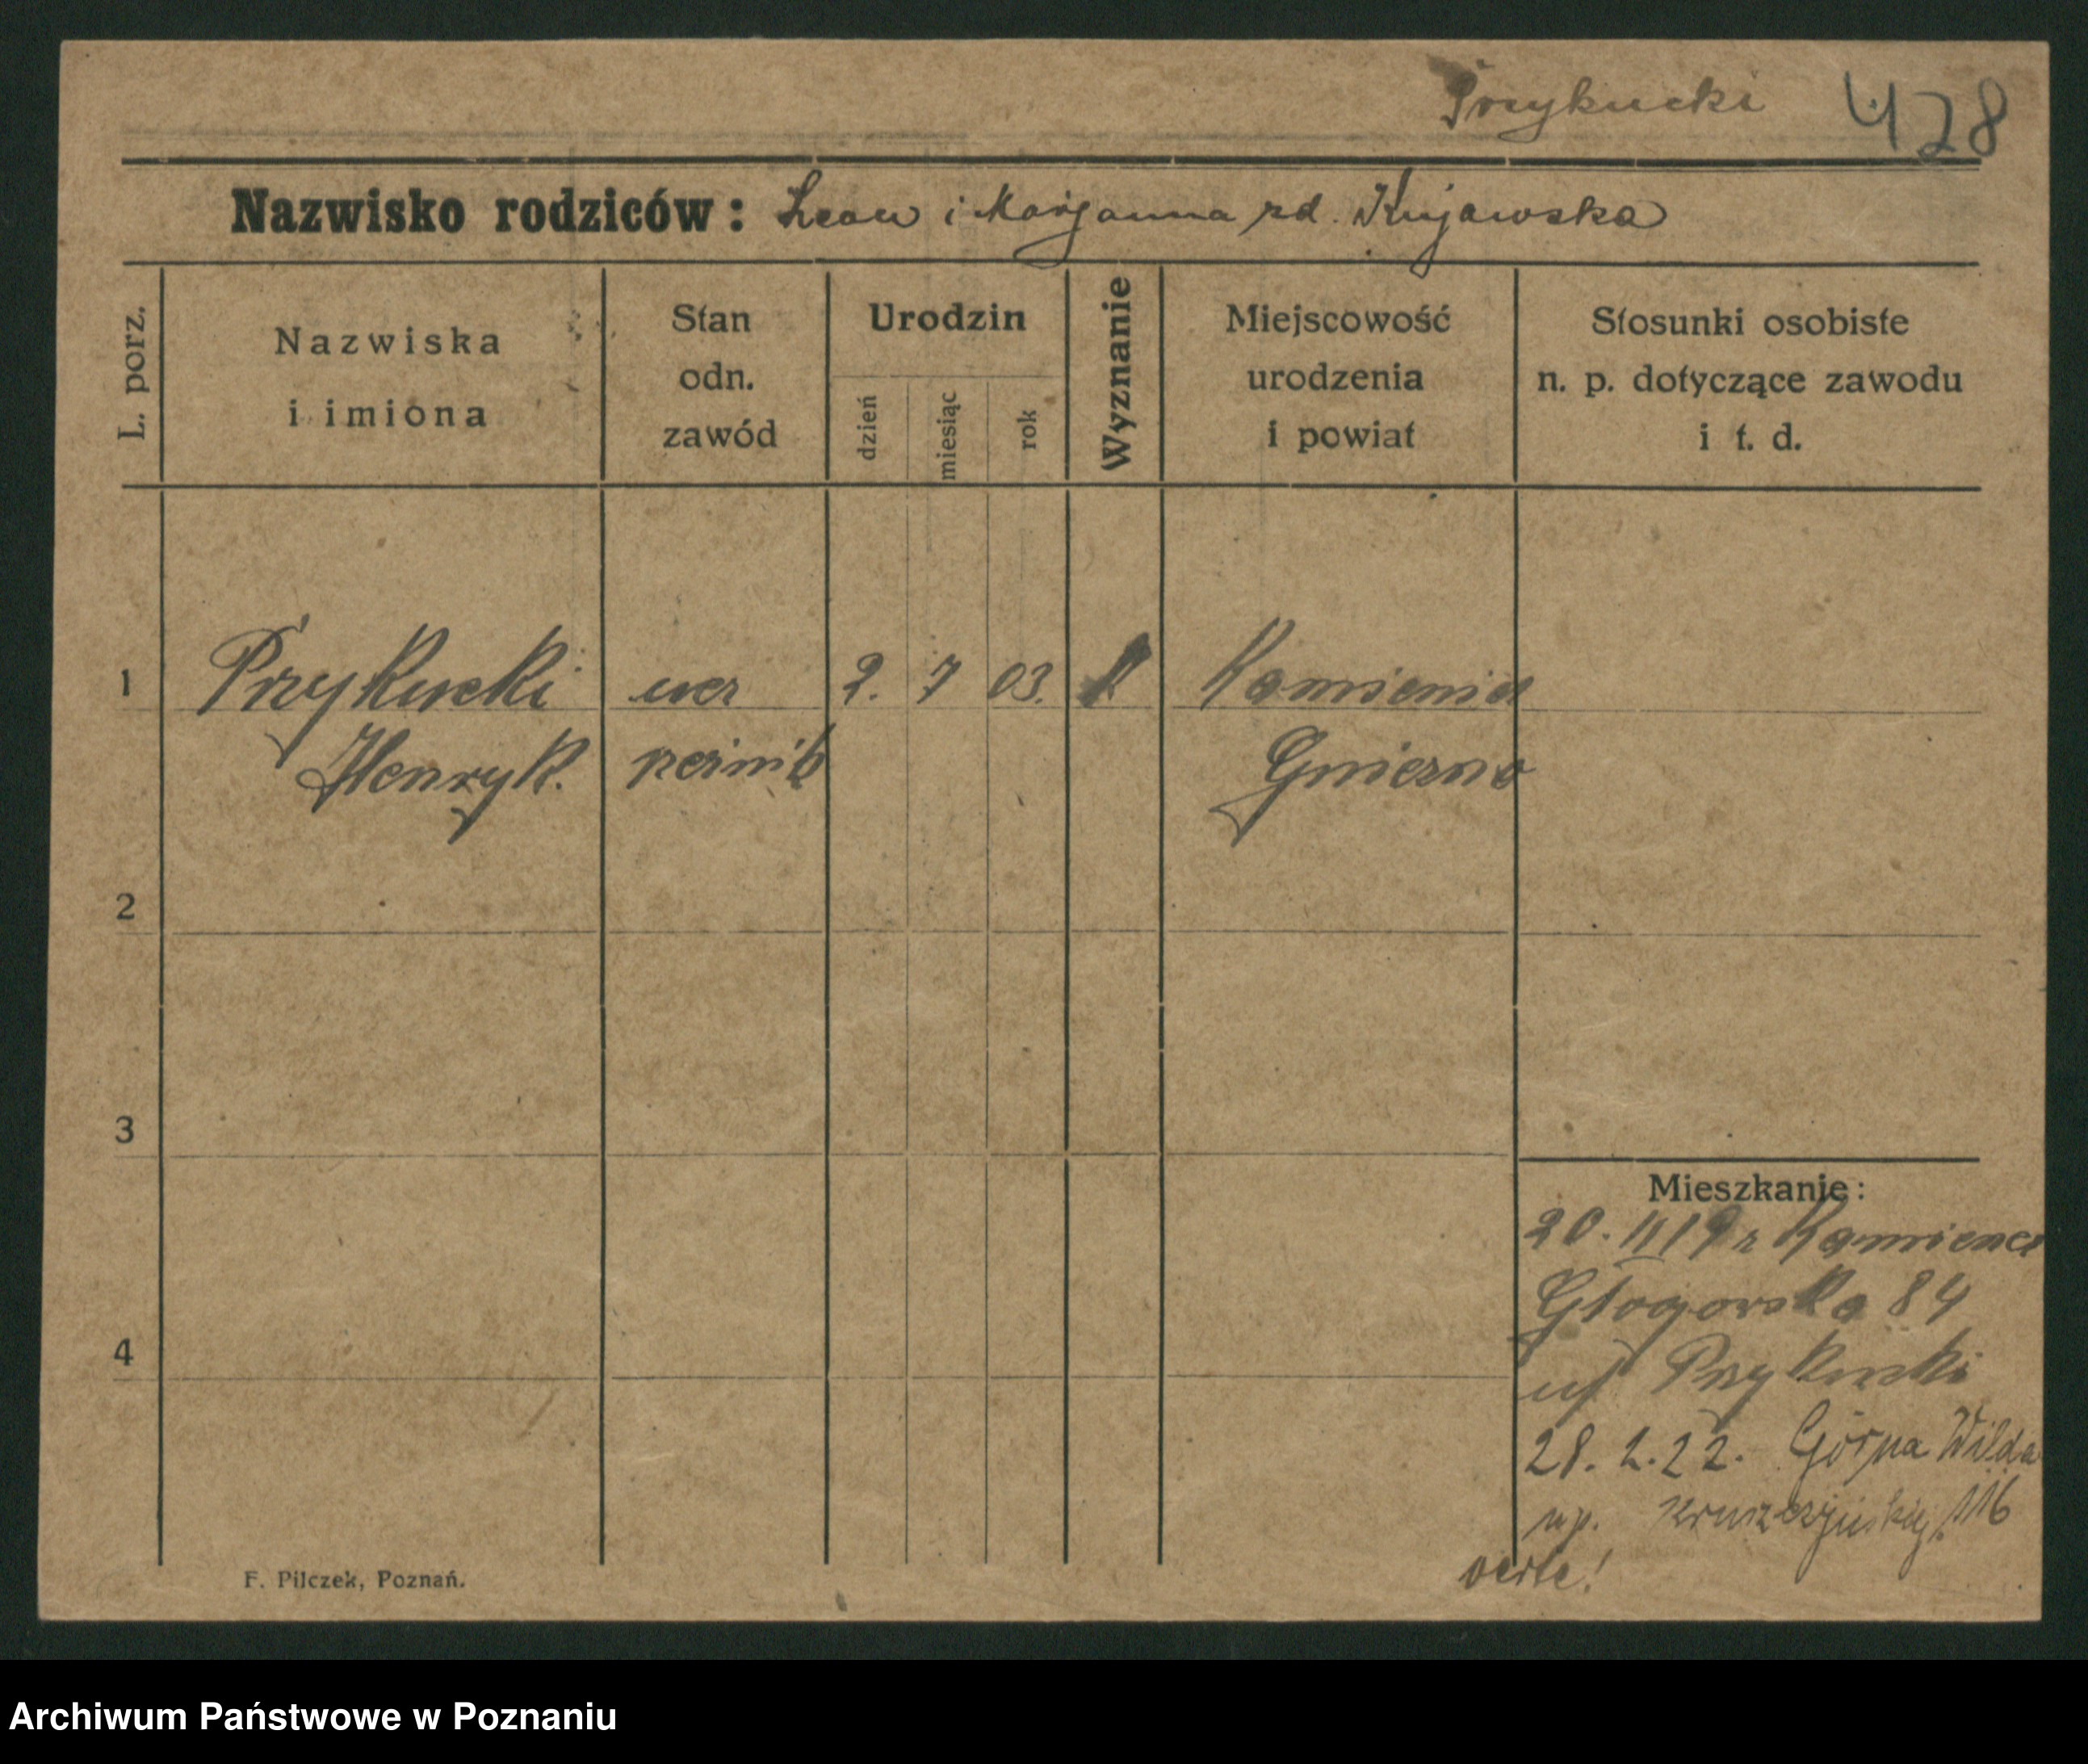 Przykucki 428
Nazwisko rodziców: Leon i Marjanna rd. Kujawska
L. porz.
Nazwiska
i imiona
Stan
odn.
zawód
Urodzin
dzień
miesiąc
rok
Wyznanie
Miejscowość
urodzenia
i powiat
Stosunki osobiste
n. p. dotyczące zawodu
i t. d.
1 Przykucki ucz 2. 7 03. K Kamieniec
Henryk. rzeźnik Gniezno
2
3
4
Mieszkanie:
20. II 19 r Kamieniec
Głogowska 84
u/ Przykucki
28. 2. 22. Górna Wilda
up. 116
verte!
F. Pilczek, Poznań.
Archiwum Państwowe w Poznaniu